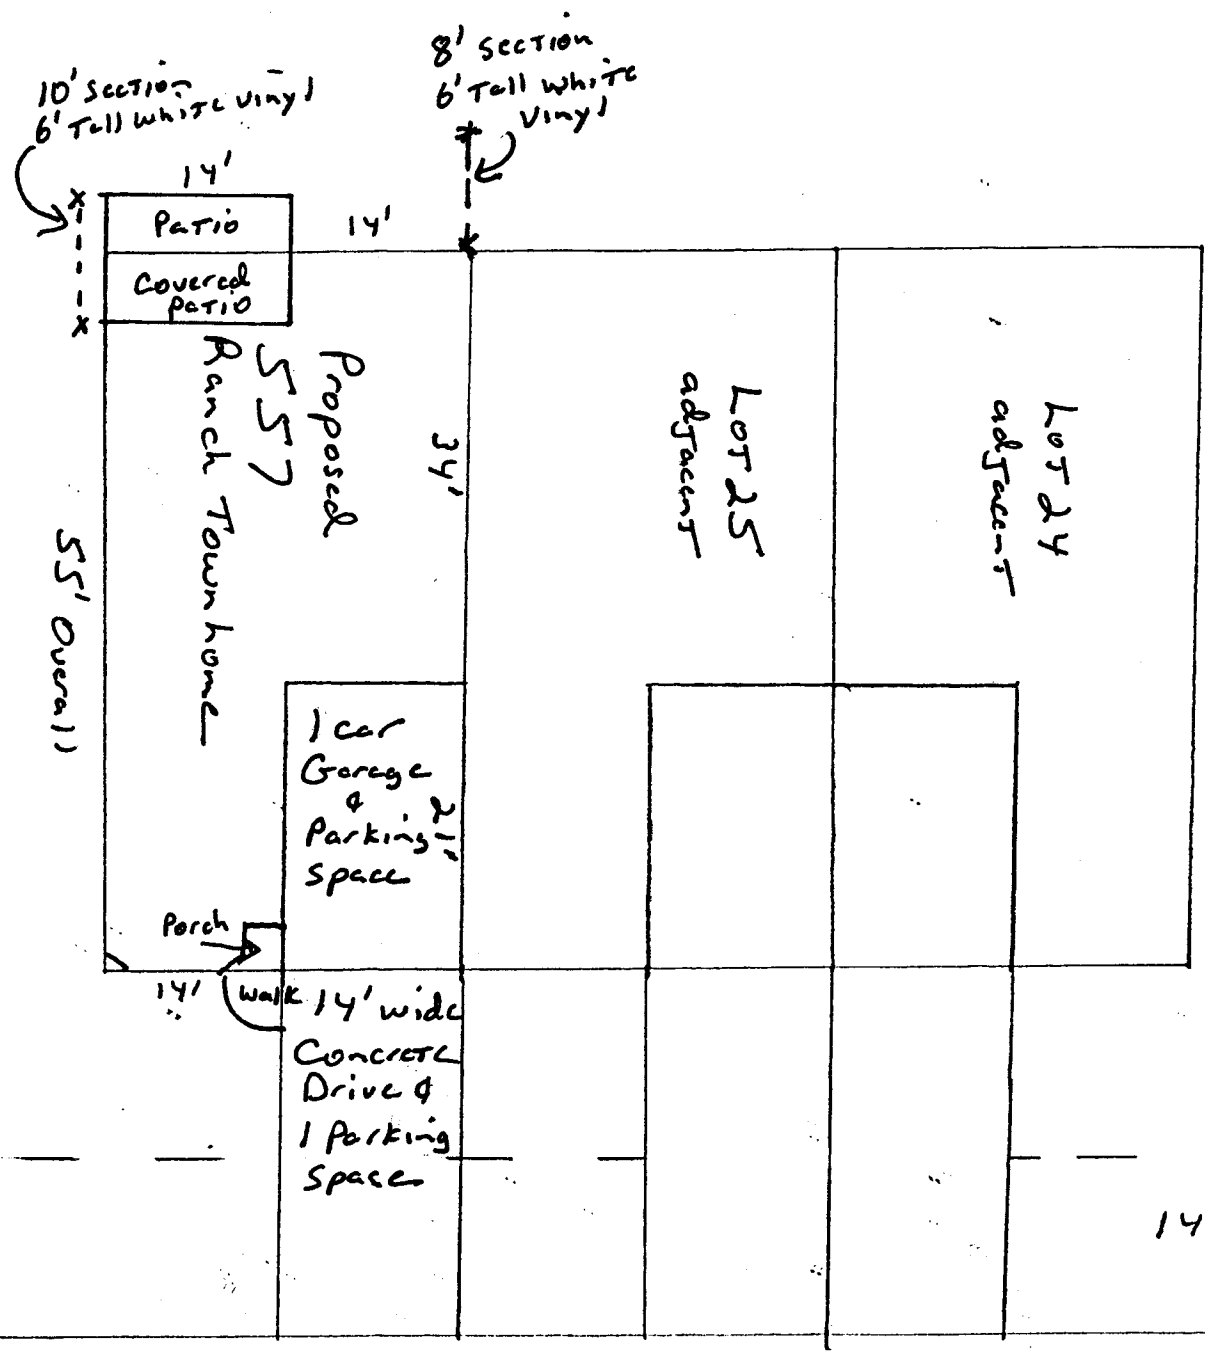 8' Section
6' Tall white
vinyl
10' Section
6' Tall white vinyl
14'
Patio
14'
Covered
Patio
Proposed
557
Ranch Townhome
34'
55' Overall
Lot 25
adjacent
Lot 24
adjacent
1 car
Garage
&
Parking
space
21'
Porch
14'
walk
14' wide
Concrete
Drive &
1 Parking
Space
14